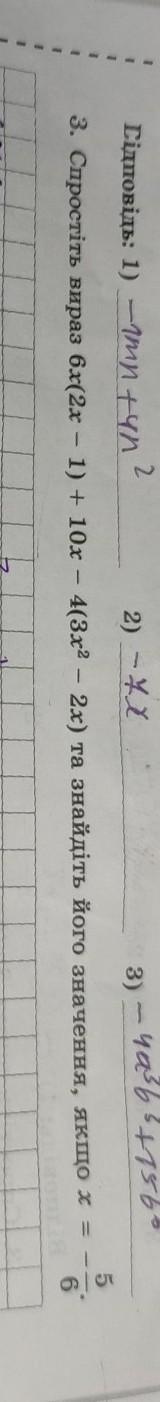 Відповідь: 1) −7mn+4n² 2) −7x 3) −4a³b³+15b
3. Спростіть вираз 6x(2x − 1) + 10x − 4(3x² − 2x) та знайдіть його значення, якщо x = −5/6.